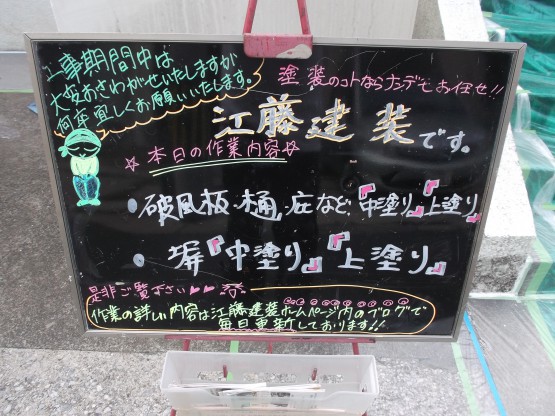 工事期間中は
大変おさわがせいたしますが
何卒宜しくお願いいたします。
塗装のコトならナンデもお任せ!!
江藤建装です。
☆本日の作業内容☆
・破風板・樋,庇など、『中塗り』『上塗り』
・塀『中塗り』『上塗り』
是非ご覧下さい
作業の詳しい内容は江藤建装ホームページ内のブログで
毎日更新しております!!